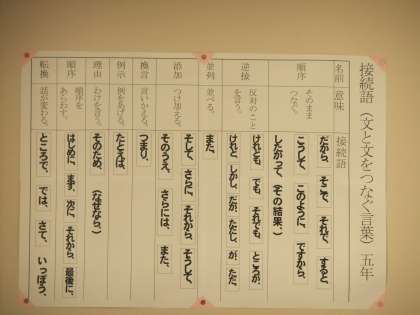 接続語（文と文をつなぐ言葉）五年
名前 意味 接続語
順序 そのまま
つなぐ。
だから、 そこで、 それで、 すると、
こうして、 このように、 ですから、
したがって、（その結果、）
逆接 反対のこと
を言う。
けれども、 でも、 それでも、 ところが、
けれど、 しかし、 だが、 ただし、 が、 ただ、
並列 並べる。 また、
添加 つけ加える。 そして、 さらに、 それから、 そうして、
そのうえ、 さらには、 また、
換言 言いかえる。 つまり、
例示 例をあげる。 たとえば、
理由 わけを言う。 そのため、（なぜなら、）
順序 順序を
あらわす。
はじめに、 まず、 次に、 それから、 最後に、
転換 話が変わる。 ところで、 では、 さて、 いっぽう、